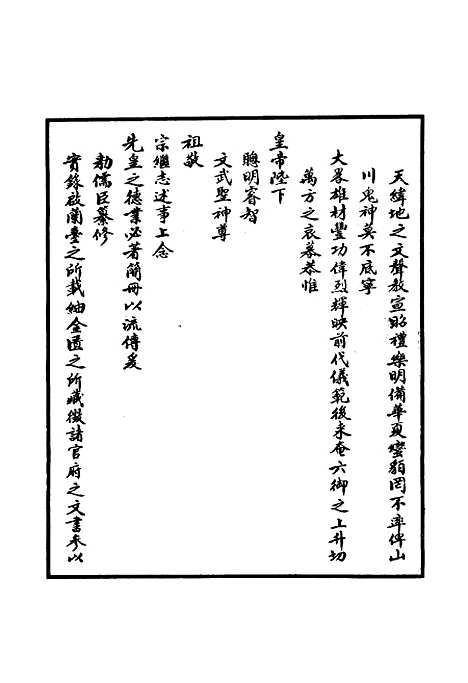 天緯地之文聲教宣昭禮樂明備華夏蠻貊罔不率俾山
川鬼神莫不底寧
大畧雄材豐功偉烈輝映前代儀範後来奄六御之上升切
萬方之哀慕恭惟
皇帝陛下
聰明睿智
文武聖神尊
祖敬
宗繼志述事上念
先皇之德業必著簡冊以流傳爰
勑儒臣纂修
實錄啟蘭臺之所載紬金匱之所藏徵諸官府之文書參以